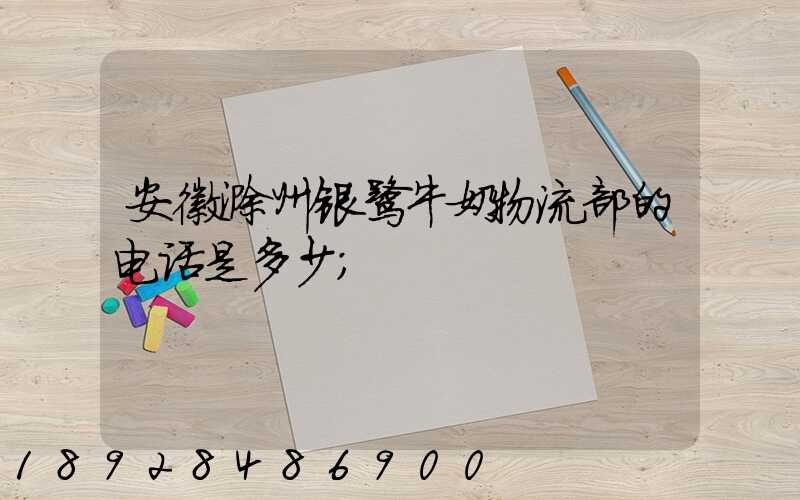 安徽滁州银鹭牛奶物流部的
电话是多少;
18928486900